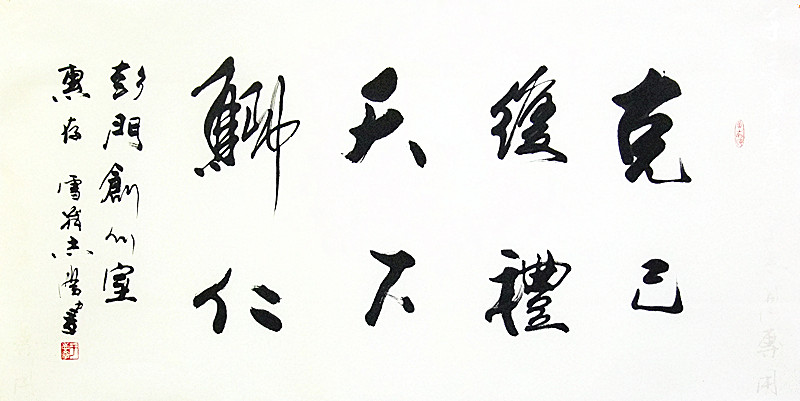 克己
復禮
天下
歸仁
彭門創作室
惠存 雪 志 書
專用